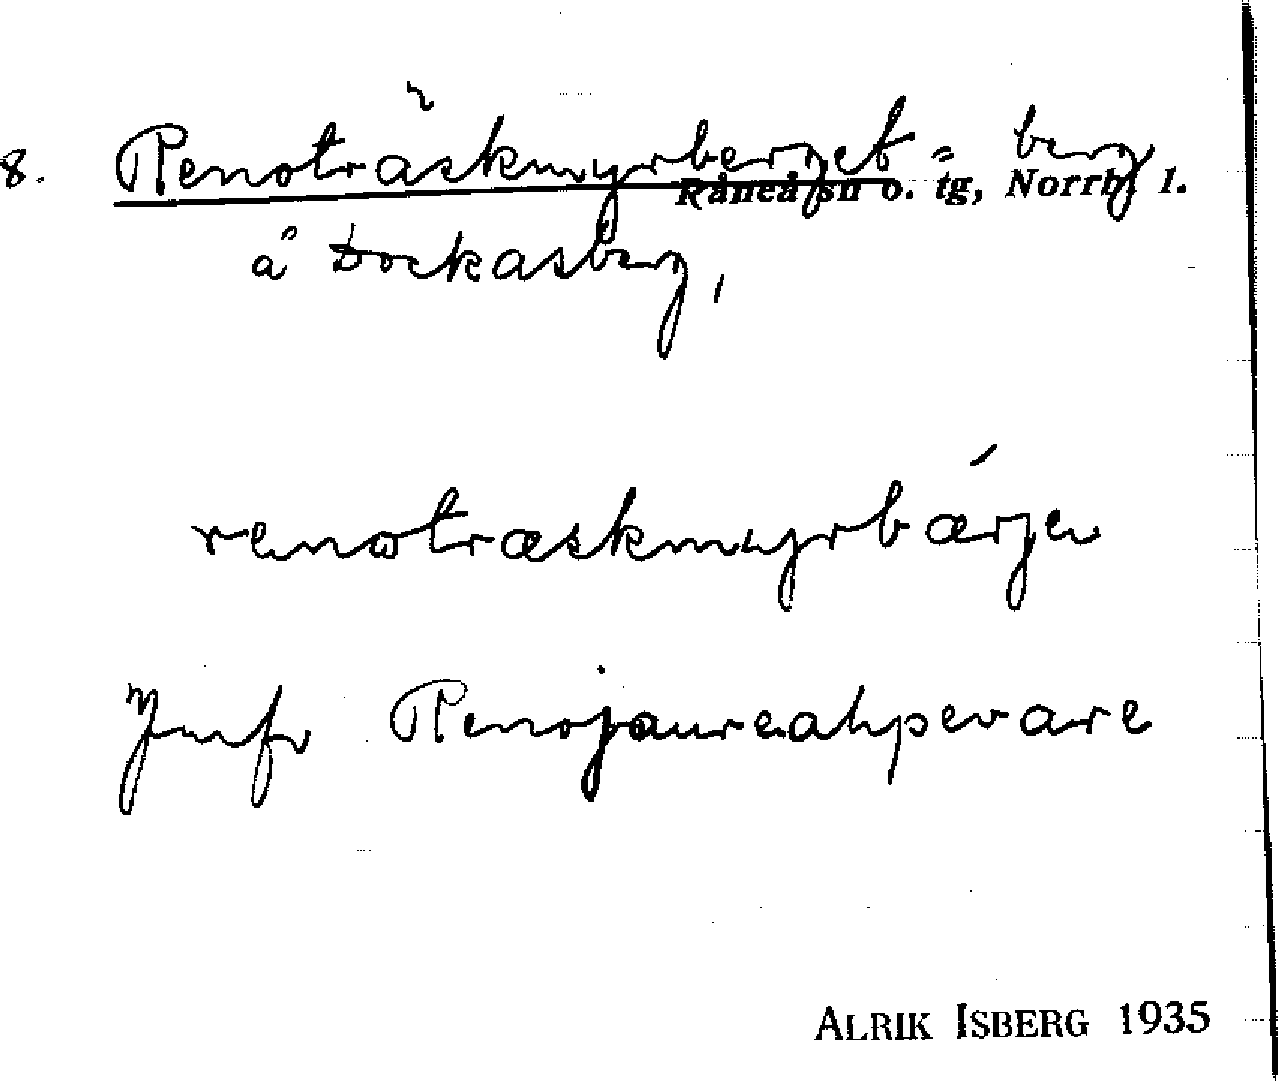 8. Renoträskmyrberget = berg
Råneå sn o. tg, Norrb. l.
å Dockasberg,
renoträskmyrbærje
Jmfr Renojaureahpevare
ALRIK ISBERG 1935